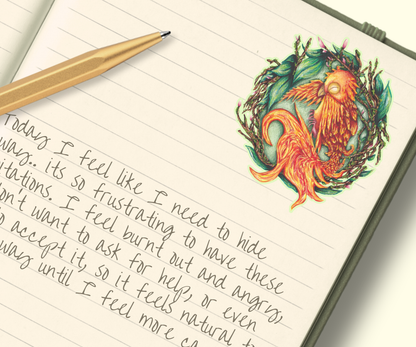 Today I feel like I need to hide
way.. its so frustrating to have these
itations. I feel burnt out and angry,
don't want to ask for help, or even
o accept it, so it feels natural t
way until I feel more ca